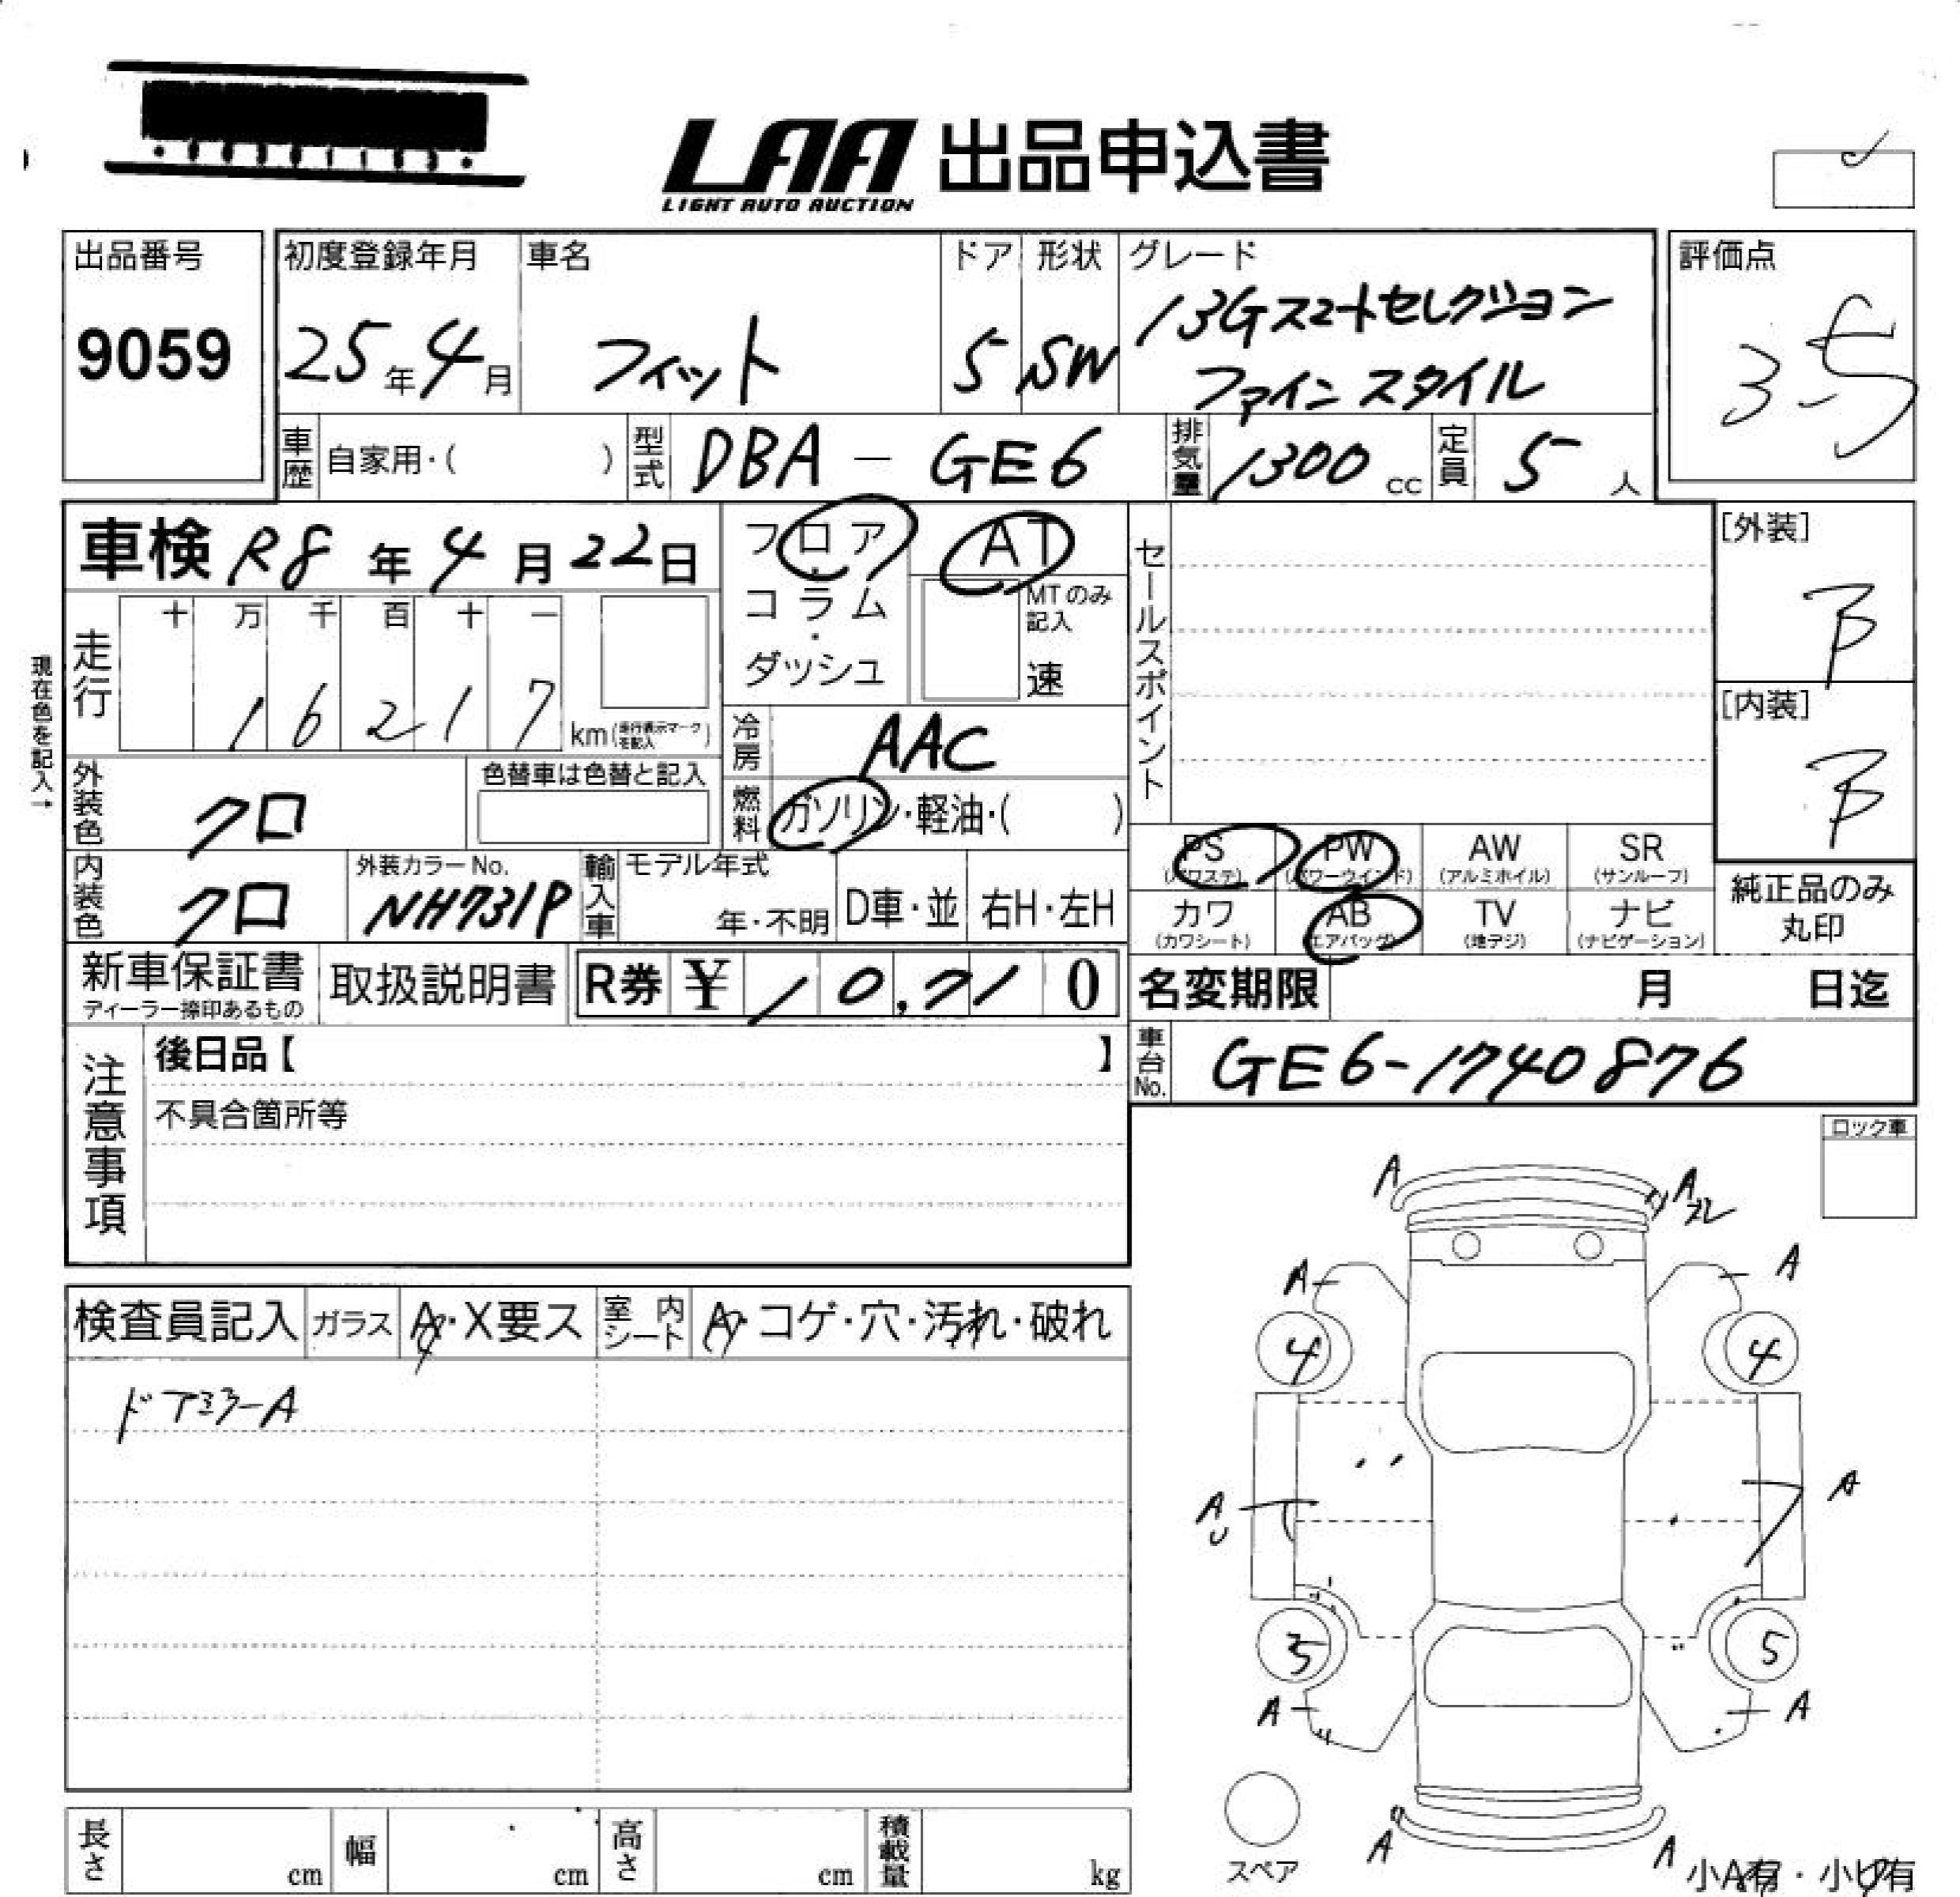 LAA 出品申込書
LIGHT AUTO AUCTION
出品番号 初度登録年月 車名 ドア 形状 グレード 評価点
9059 25年4月 フィット 5 SW 13Gスマートセレクション 3.5
ファインスタイル
車歴 自家用・( ) 型式 DBA - GE6 排気量 1300 cc 定員 5 人
車検 R8年4月22日 フロア AT セールスポイント [外装]
B
コラム・ MTのみ記入
ダッシュ 速
現在色を記入→
走行 十 万 千 百 十 一
1 6 2 1 7 km(走行表示マークを記入) [内装]
B
冷房 AAC
外装色 クロ 色替車は色替と記入 燃料 ガソリン・軽油・( )
PS PW AW SR
(パワステ) (パワーウインド) (アルミホイル) (サンルーフ)
内装色 クロ 外装カラーNo. NH731P 輸入車 モデル年式 年・不明 D車・並 右H・左H
カワ AB TV ナビ 純正品のみ
(カワシート) (エアバッグ) (地デジ) (ナビゲーション) 丸印
新車保証書 取扱説明書 R券 ¥ 10,710 名変期限 月 日迄
ディーラー捺印あるもの
注意事項 後日品【 】 車台No. GE6-1740876
不具合箇所等
ロック車
検査員記入 ガラス A・X要ス 室内シート A・コゲ・穴・汚れ・破れ
ドアミラーA
A A ズレ
A A
4 4
A U A
3 5
A A
スペア A A 小A有・小U有
長さ cm 幅 cm 高さ cm 積載量 kg